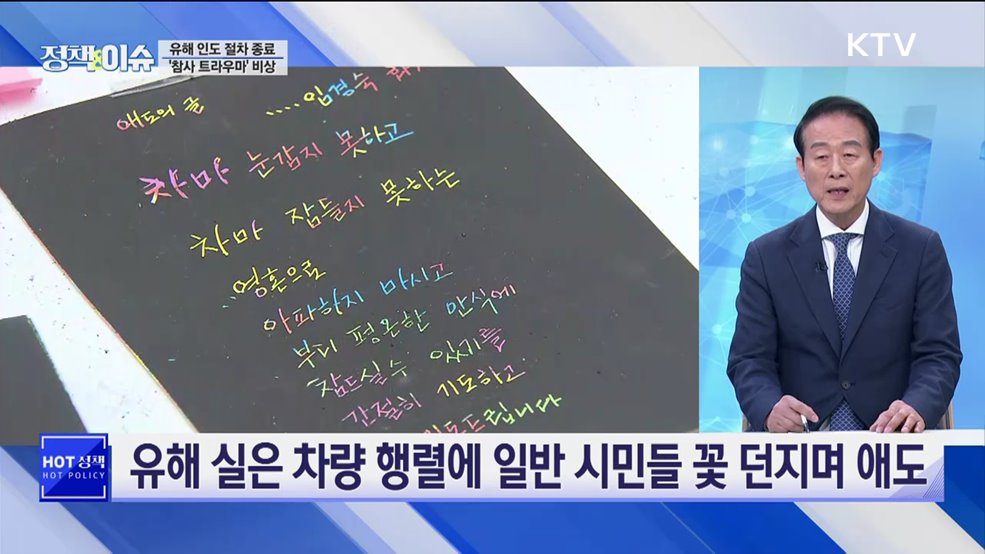 정책&이슈
유해 인도 절차 종료
'참사 트라우마' 비상
KTV
애도의 글 ....임경숙
차마 눈감지 못하고
차마 잠들지 못하는
영혼으로
아파하지 마시고
부디 평온한 안식에
잠드실수 있기를
간절히 기도하고
드립니다
HOT 정책
HOT POLICY
유해 실은 차량 행렬에 일반 시민들 꽃 던지며 애도